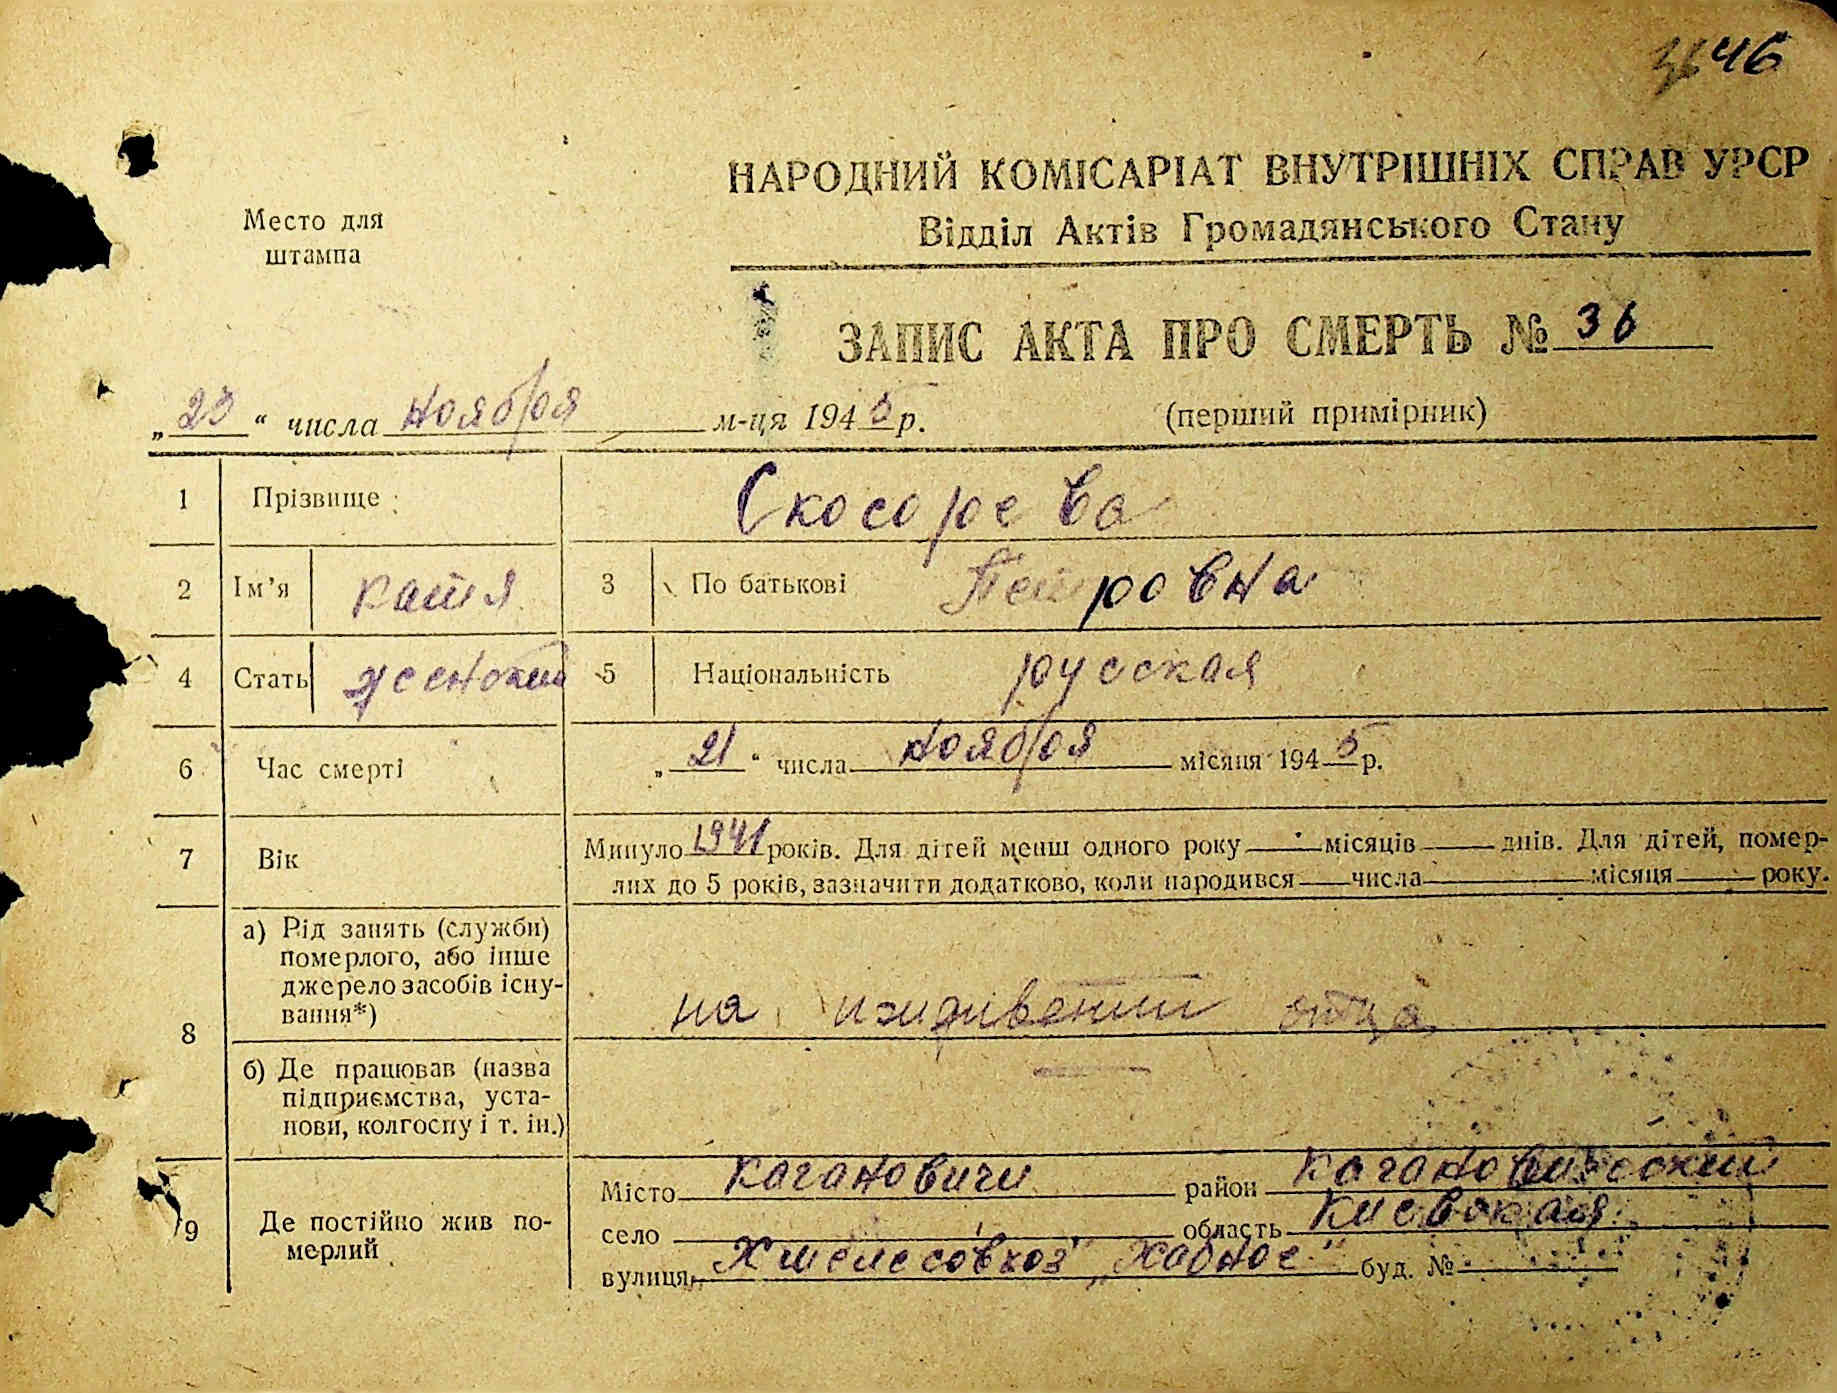 46
НАРОДНИЙ КОМІСАРІАТ ВНУТРІШНІХ СПРАВ УРСР
Відділ Актів Громадянського Стану
Место для
штампа
ЗАПИС АКТА ПРО СМЕРТЬ № 36
„23“ числа ноября м-ця 1945 р.
(перший примірник)
1 Прізвище Скосорева
2 Ім’я Катя 3 По батькові Петровна
4 Стать женский 5 Національність русская
6 Час смерті „21“ числа ноября місяця 1945 р.
7 Вік Минуло 1941 років. Для дітей менш одного року місяців днів. Для дітей, помер-
лих до 5 років, зазначити додатково, коли народився числа місяця року.
8 а) Рід занять (служби)
померлого, або інше
джерело засобів існу-
вання*)
на иждивении отца
б) Де працював (назва
підприємства, уста-
нови, колгоспу і т. ін.)
—
9 Де постійно жив по-
мерлий
Місто Кагановичи район Кагановический
село область Киевская
вулиця Хмелесовхоз „Хабное“ буд. №